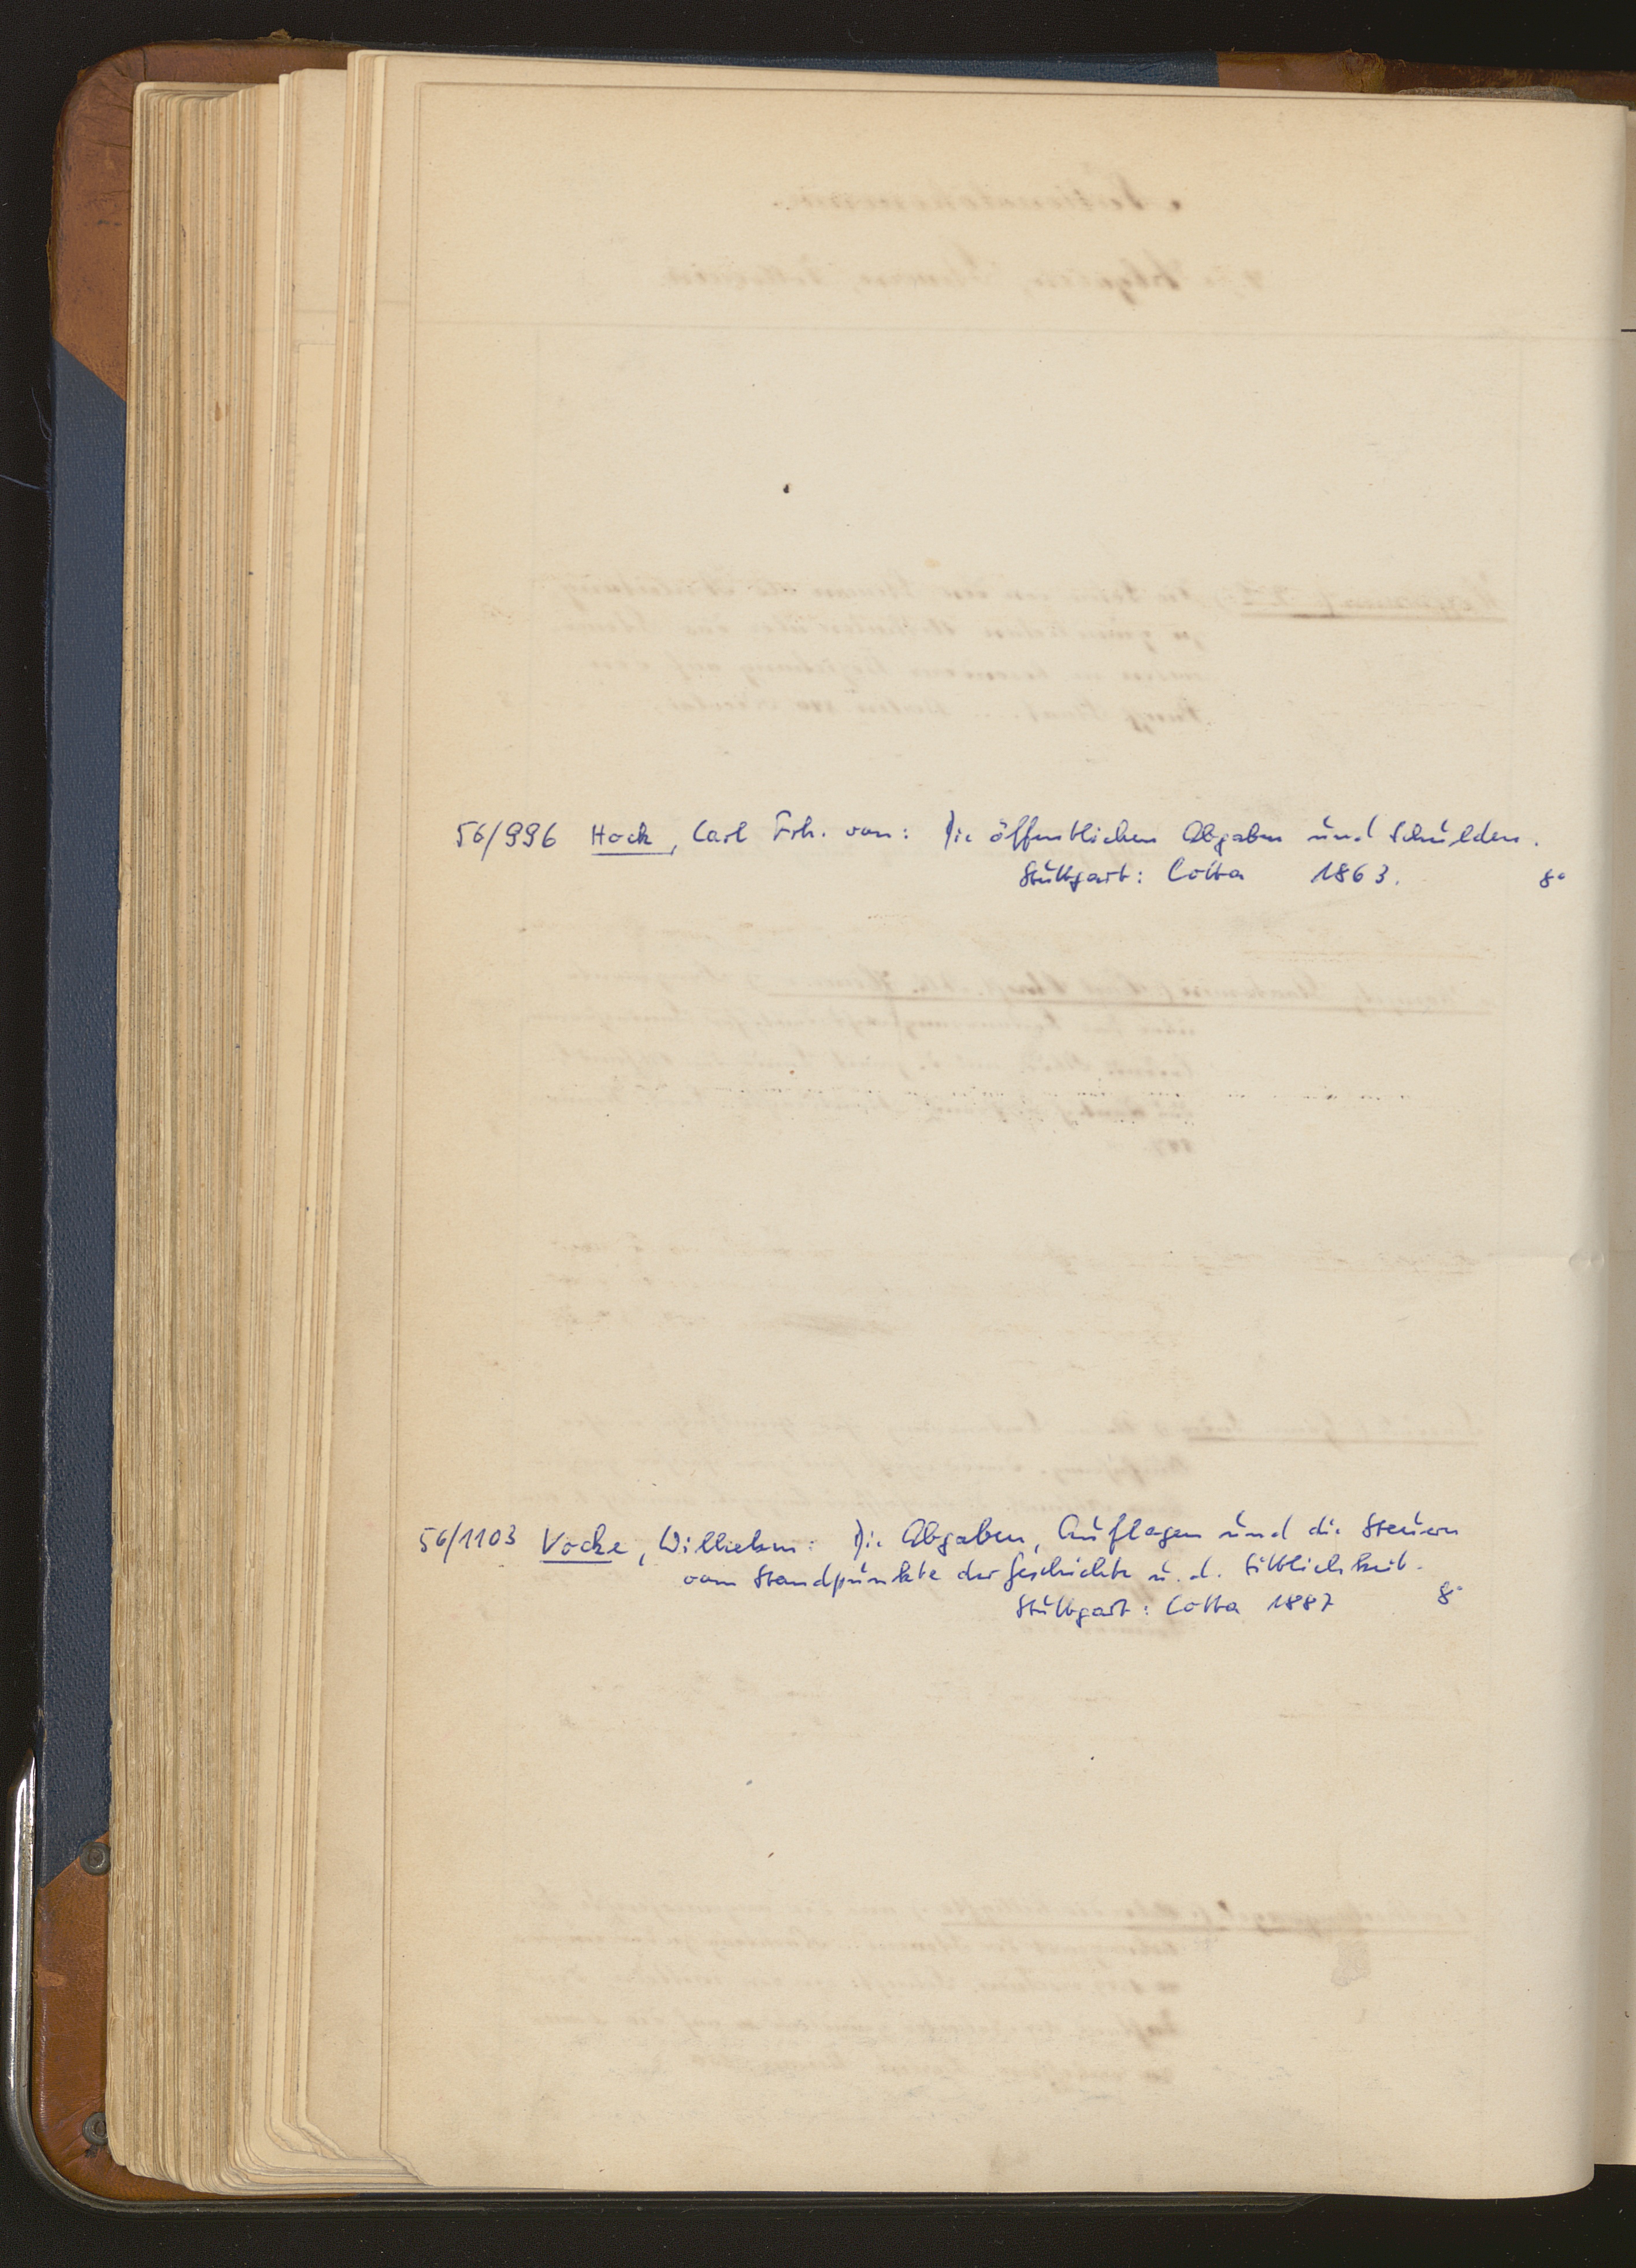 56/996 Hock, Carl Frh. von: Die öffentlichen Abgaben und Schulden.
Stuttgart: Cotta 1863. 8°
56/1103 Vocke, Wilhelm: Die Abgaben, Auflagen und die Steuern
vom Standpunkte der Geschichte u. d. Sittlichkeit.
Stuttgart: Cotta 1887 8°